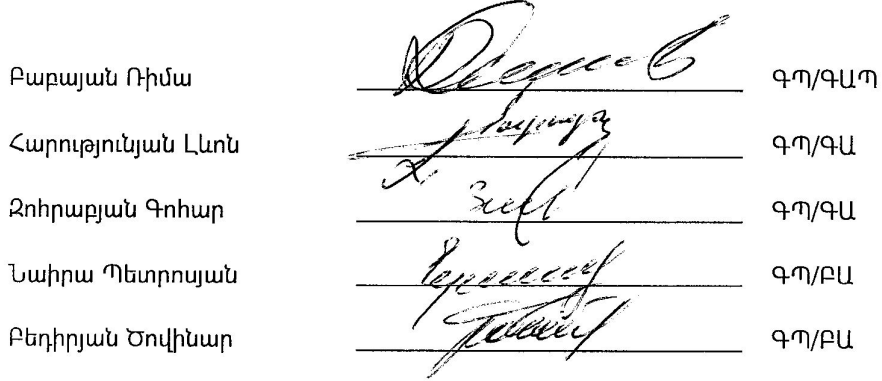 Բաբայան Ռիմա ԳՊ/ԳԱՊ
Հարությունյան Լևոն ԳՊ/ԳԱ
Զոհրաբյան Գոհար ԳՊ/ԳԱ
Նաիրա Պետրոսյան ԳՊ/ԲԱ
Բեդիրյան Ծովինար ԳՊ/ԲԱ